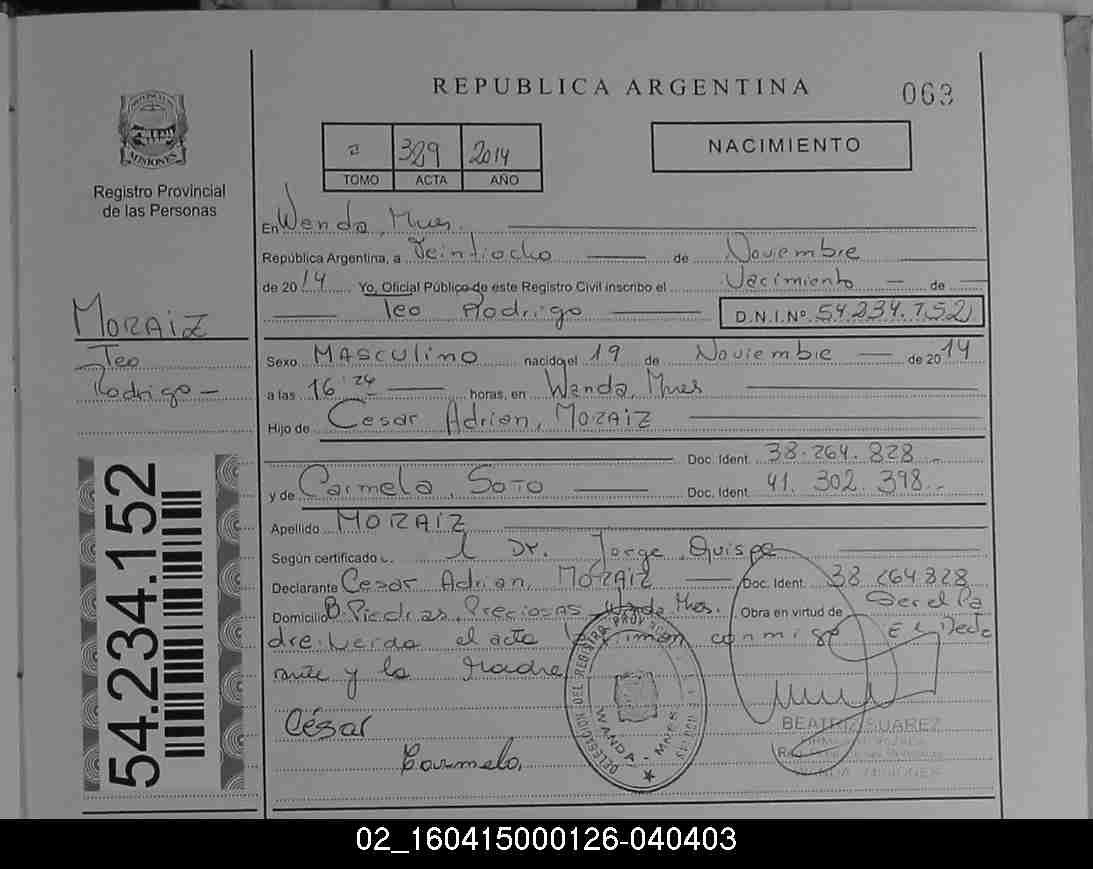 REPUBLICA ARGENTINA
063
PROVINCIA MISIONES
Registro Provincial
de las Personas
2 389 2014
TOMO ACTA AÑO
NACIMIENTO
En Wanda, Mnes.
República Argentina, a Veintiocho de Noviembre
de 2014 Yo, Oficial Público de este Registro Civil inscribo el Nacimiento de
Teo Rodrigo D.N.I.Nº 54.234.152
MORAIZ
Teo
Rodrigo
Sexo MASCULINO nacido el 19 de Noviembre de 2014
a las 16:24 horas, en Wanda, Mnes
Hijo de Cesar Adrian, MORAIZ
Doc. Ident. 38.264.828
y de Carmela, SOTO Doc. Ident. 41.302.398
Apellido MORAIZ
Según certificado Dr. Jorge Quispe
Declarante Cesar Adrian, MORAIZ Doc. Ident. 38.264.828
Domicilio B. Piedras Preciosas Wanda Mnes. Obra en virtud de Ser el Pa
dre. Leida el acta la firman conmigo El Decla
rante y la Madre
54.234.152
César
Carmela
DELEGACION DEL REGISTRO PROV
WANDA - MNES
BEATRIZ SUAREZ
WANDA MISIONES
02_160415000126-040403